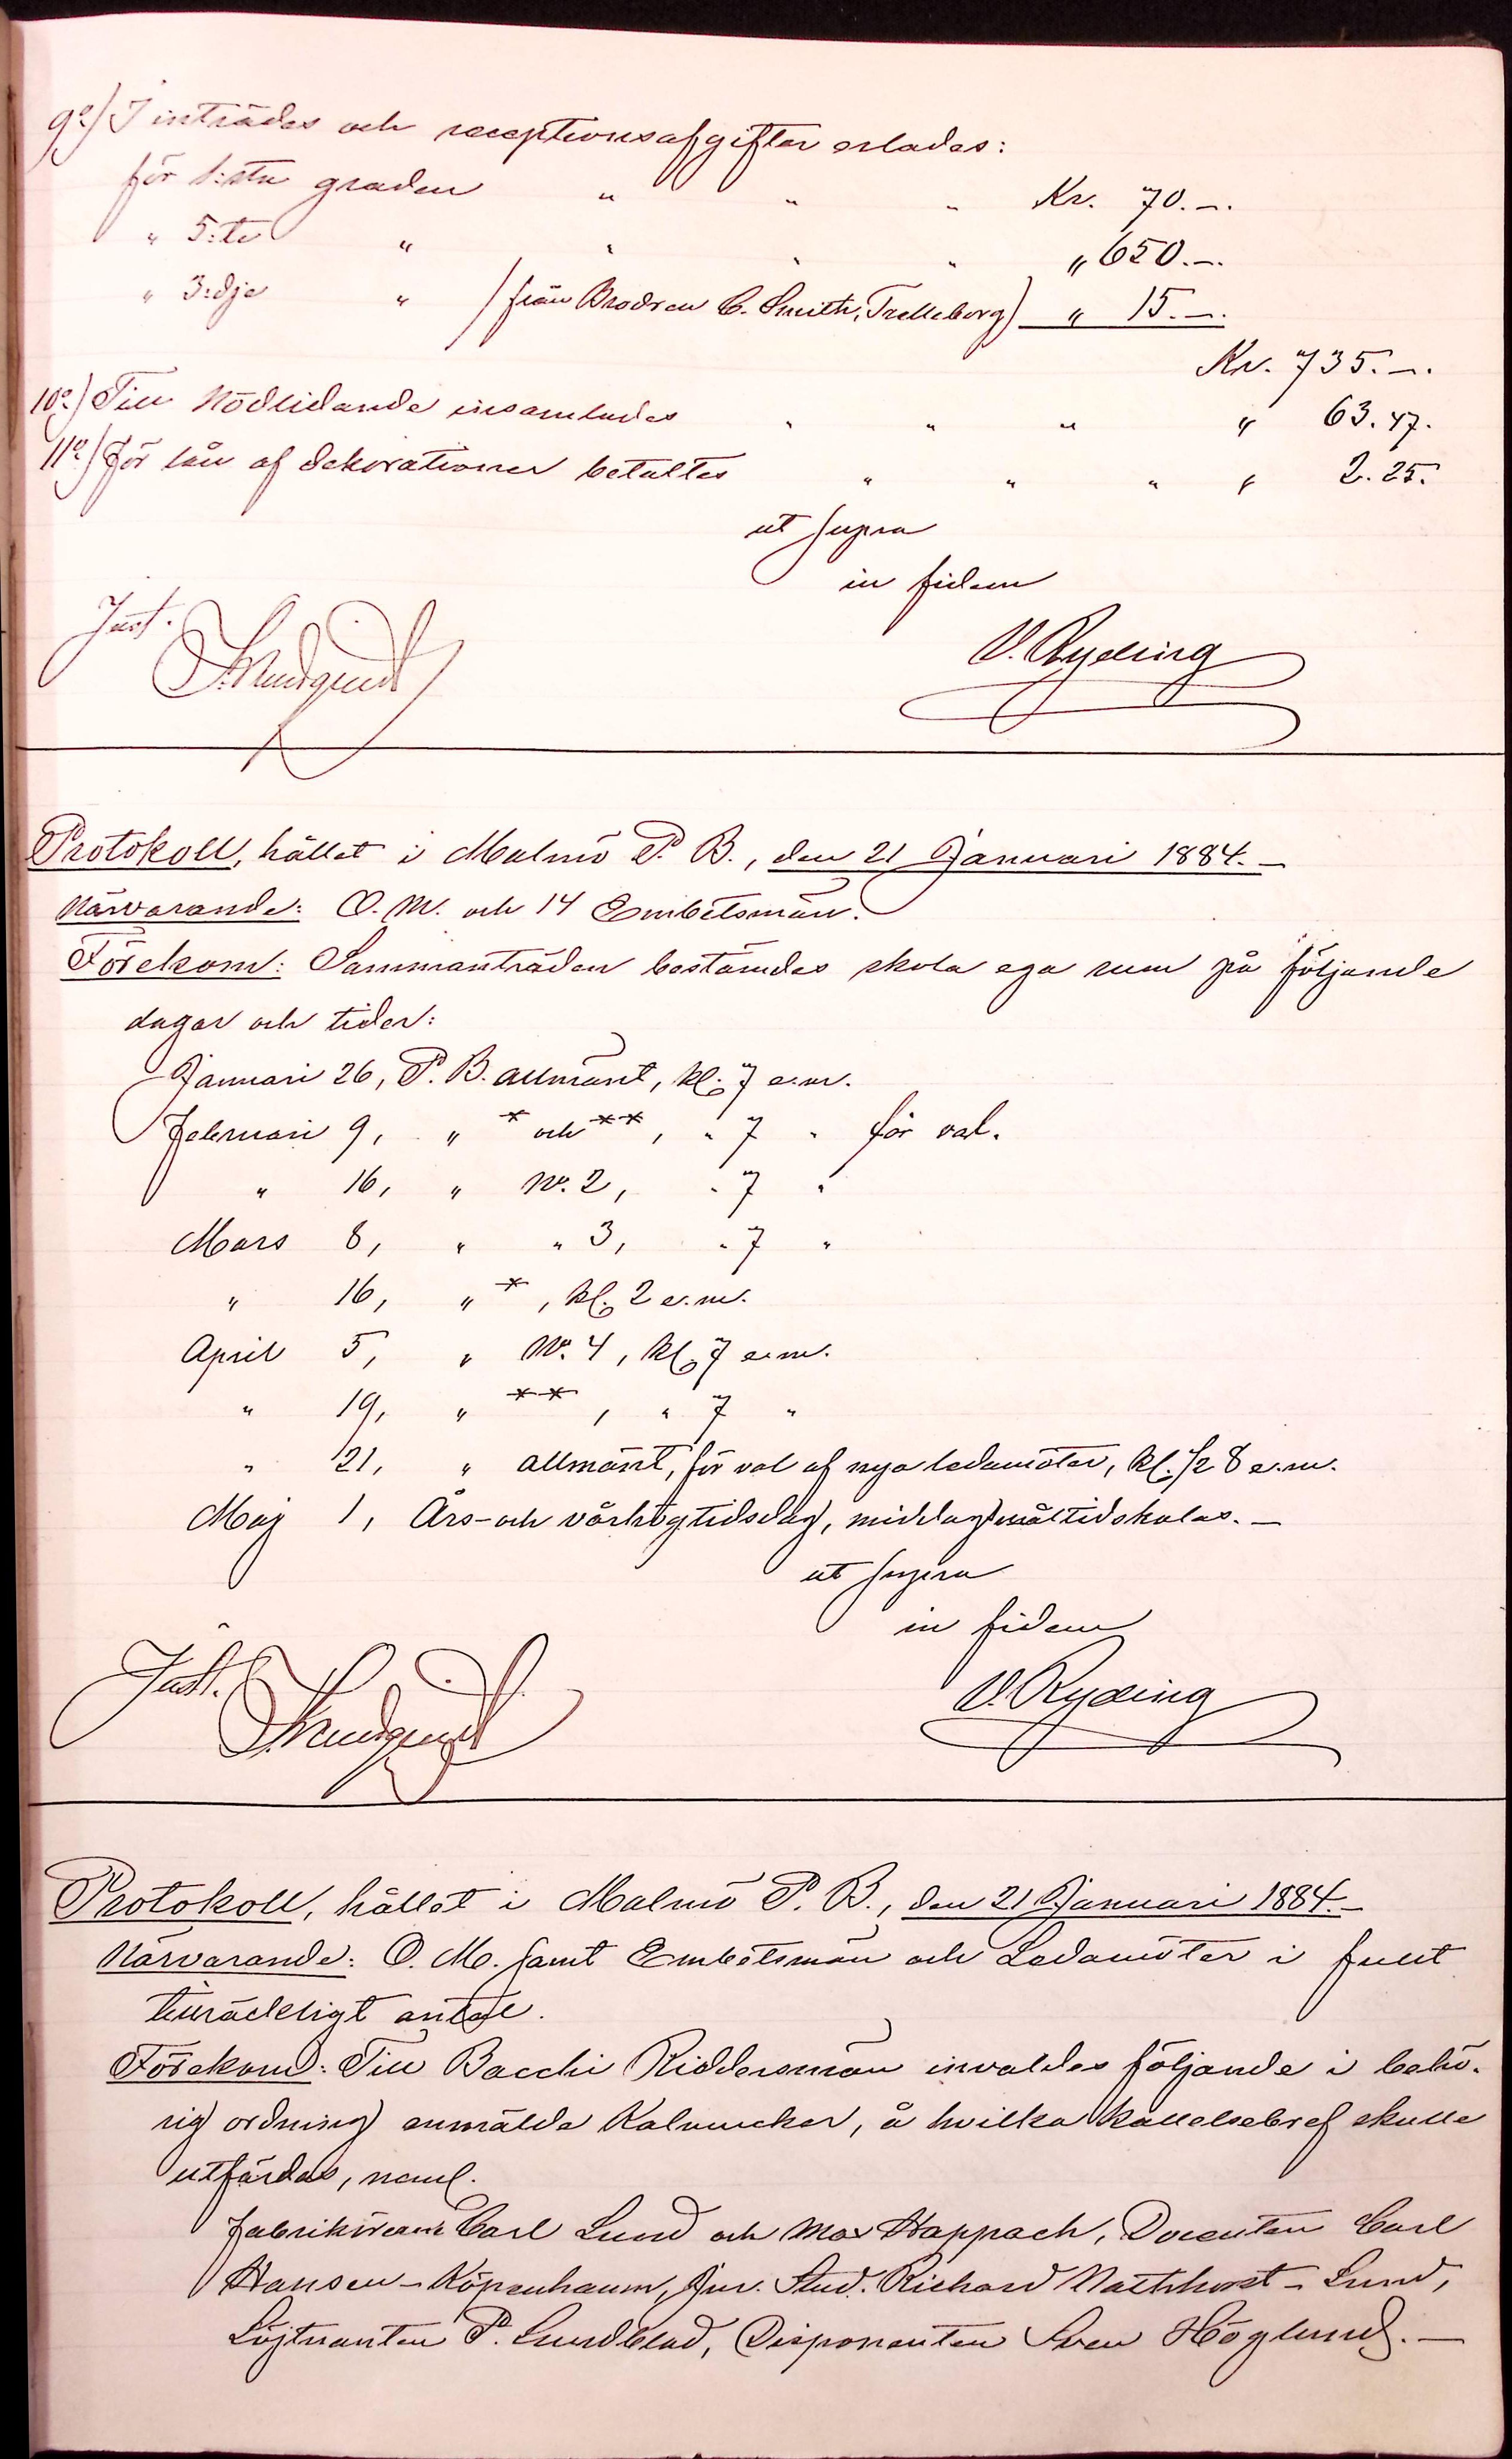 9o) I inträdes och receptionsafgifter erlades:
för 1:sta graden " " " Kr. 70.–.
" 5:te " " " " " 650.–.
" 3:dje " (från Brodren C. Smith, Trelleborg) " 15.–.
Kr. 735.–.
10o) Till Nödlidande insamlades " " " " 63.47.
11o) För lån af dekorationer betaltes " " " " 2.25.
ut supra
in fidem
Just.
V. Ryding
Protokoll, hållet i Malmö P. B., den 21 Januari 1884.–
Närvarande: O. M. och 14 Embetsmän.
Förekom: Sammanträden bestämdes skola ega rum på följande
dagar och tider:
Januari 26, P. B. allmänt, kl. 7 e.m.
Februari 9, " * och **, " 7 " för val.
" 16, " No. 2, " 7 "
Mars 8, " " 3, " 7 "
" 16, " *, kl. 2 e.m.
April 5, " No. 4, kl. 7 e.m.
" 19, " **, " 7 "
" 21, " allmänt, för val af nya ledamöter, kl. 1/2 8 e.m.
Maj 1, Års- och vårhögtidsdag, middagsmåltidskalas.–
ut supra
in fidem
Just.
V. Ryding
Protokoll, hållet i Malmö P. B., den 21 Januari 1884.–
Närvarande: O. M. samt Embetsmän och Ledamöter i fullt
tillräckligt antal.
Förekom: Till Bacchi Riddersmän invaldes följande i behö-
rig ordning anmälde Kalmucker, å hvilka kallelsebref skulle
utfärdas, neml.
Fabrikörerne Carl Lund och Max Happach, Docenten Carl
Hansen - Köpenhamn, Jur. Stud. Richard Nathhorst - Lund,
Löjtnanten P. Lundblad, Disponenten Sven Höglund.–